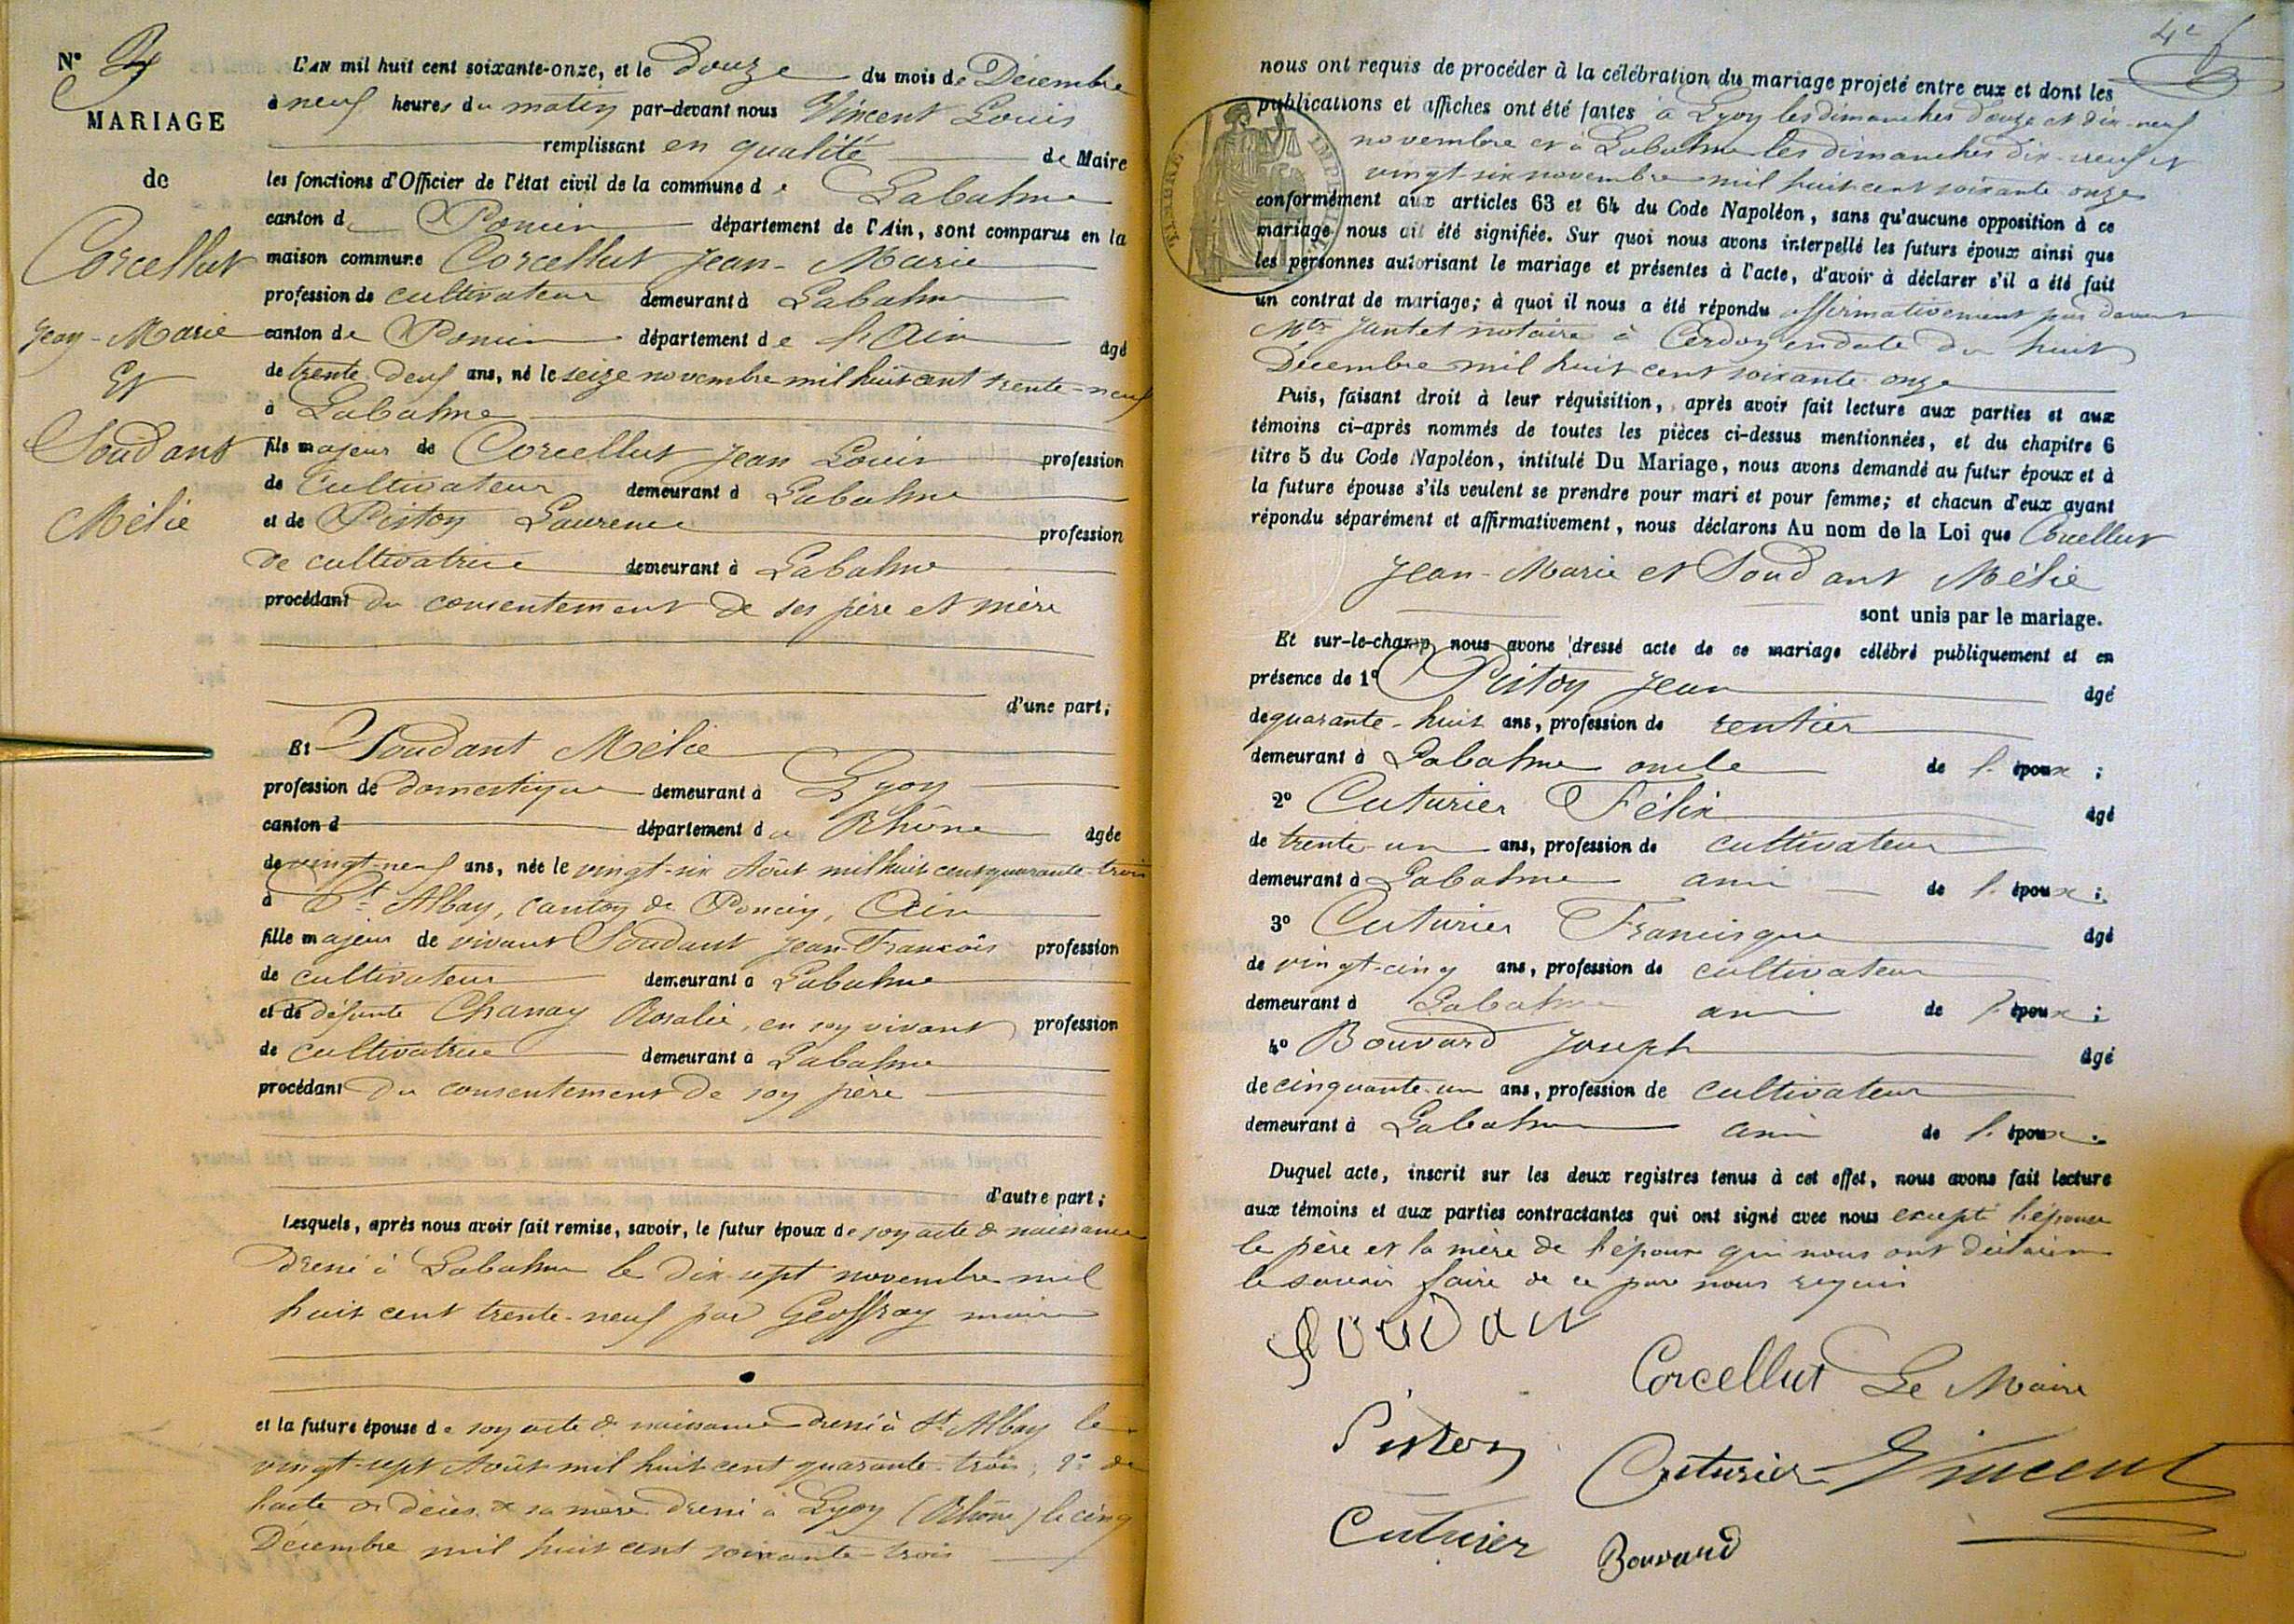 N° 4
MARIAGE
de
Corcellut
Jean-Marie
Et
Soudant
Mélie
L'AN mil huit cent soixante-onze, et le Douze du mois de Décembre
à neuf heures du matin par-devant nous Vincent Louis
remplissant en qualité de Maire
les fonctions d'Officier de l'état civil de la commune de Labalme
canton de Poncin département de l'Ain, sont comparus en la
maison commune Corcellut Jean-Marie
profession de cultivateur demeurant à Labalme
canton de Poncin département de l'Ain âgé
de trente-deux ans, né le seize novembre mil huit cent trente-neuf
à Labalme
fils majeur de Corcellut Jean Louis profession
de Cultivateur demeurant à Labalme
et de Piston Laurence profession
de cultivatrice demeurant à Labalme
procédant du consentement de ses père et mère
d'une part;
Et Soudant Mélie
profession de Domestique demeurant à Lyon
canton d département du Rhône âgée
de vingt-neuf ans, née le vingt-six Août mil huit cent quarante-trois
à St Alban, canton de Poncin, Ain
fille majeur de vivant Soudant Jean-François profession
de cultivateur demeurant à Labalme
et de défunte Chanay Rosalie, en son vivant profession
de cultivatrice demeurant à Labalme
procédant du consentement de son père
d'autre part;
Lesquels, après nous avoir fait remise, savoir, le futur époux de son acte de naissance
Dressé à Labalme le dix-sept novembre mil
huit cent trente-neuf par Geoffray maire
et la future épouse de son acte de naissance dressé à St Alban le
vingt-sept Août mil huit cent quarante-trois, 2° de
l'acte de décès de sa mère dressé à Lyon (Rhône) le cinq
Décembre mil huit cent soixante-trois
4e f
nous ont requis de procéder à la célébration du mariage projeté entre eux et dont les
publications et affiches ont été faites à Lyon les dimanches douze et dix-neuf
novembre et à Labalme les dimanches dix-neuf et
vingt-six novembre mil huit cent soixante-onze
conformément aux articles 63 et 64 du Code Napoléon, sans qu'aucune opposition à ce
mariage nous ait été signifiée. Sur quoi nous avons interpellé les futurs époux ainsi que
les personnes autorisant le mariage et présentes à l'acte, d'avoir à déclarer s'il a été fait
un contrat de mariage; à quoi il nous a été répondu affirmativement par devant
Mtre Jantet notaire à Cerdon en date du huit
Décembre mil huit cent soixante-onze
Puis, faisant droit à leur réquisition, après avoir fait lecture aux parties et aux
témoins ci-après nommés de toutes les pièces ci-dessus mentionnées, et du chapitre 6
titre 5 du Code Napoléon, intitulé Du Mariage, nous avons demandé au futur époux et à
la future épouse s'ils veulent se prendre pour mari et pour femme; et chacun d'eux ayant
répondu séparément et affirmativement, nous déclarons Au nom de la Loi que Corcellut
Jean-Marie et Soudant Mélie
sont unis par le mariage.
Et sur-le-champ, nous avons dressé acte de ce mariage célébré publiquement et en
présence de 1° Piston Jean âgé
de quarante-huit ans, profession de rentier
demeurant à Labalme oncle de l'époux;
2° Cuturier Félix âgé
de trente-un ans, profession de cultivateur
demeurant à Labalme ami de l'époux;
3° Cuturier Francisque âgé
de vingt-cinq ans, profession de cultivateur
demeurant à Labalme ami de l'époux;
4° Bouvard Joseph âgé
de cinquante-un ans, profession de cultivateur
demeurant à Labalme ami de l'époux.
Duquel acte, inscrit sur les deux registres tenus à cet effet, nous avons fait lecture
aux témoins et aux parties contractantes qui ont signé avec nous excepté l'épouse
le père et la mère de l'époux qui nous ont déclaré ne
le savoir faire de ce par nous requis
Soudan
Corcellut Le Maire
Piston Cuturier Vincent
Cuturier Bouvard
TIMBRE IMPE